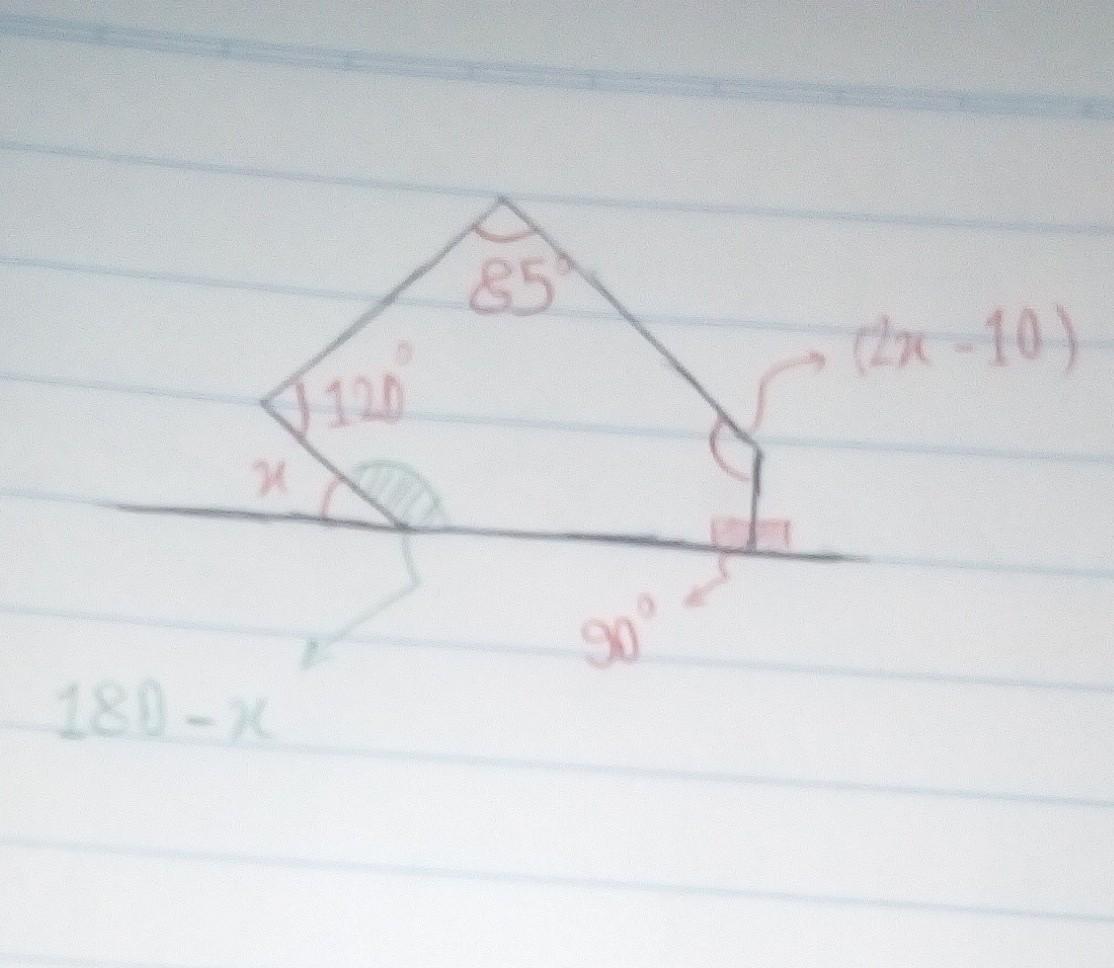 85°
(2x - 10)
120°
x
90°
180 - x